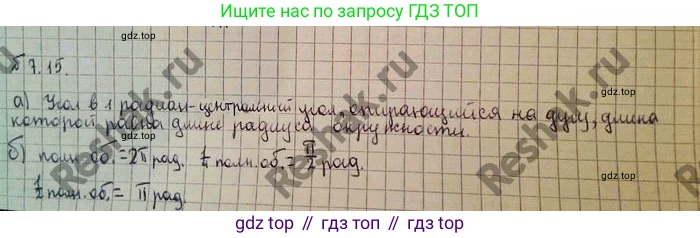 Ищите нас по запросу ГДЗ ТОП
gdz.top
№ 7.15.
а) Угол в 1 радиан-центральный угол, опирающийся на дугу, длина
которой равна длине радиуса окружности.
gdz.top
б) полн. об. = 2π рад. 1/4 полн. об. = π/2 рад.
gdz.top
1/2 полн. об. = π рад.
Reshak.ru
Reshak.ru
Reshak.ru
gdz top // гдз топ // gdz.top // гдз топ // gdz top